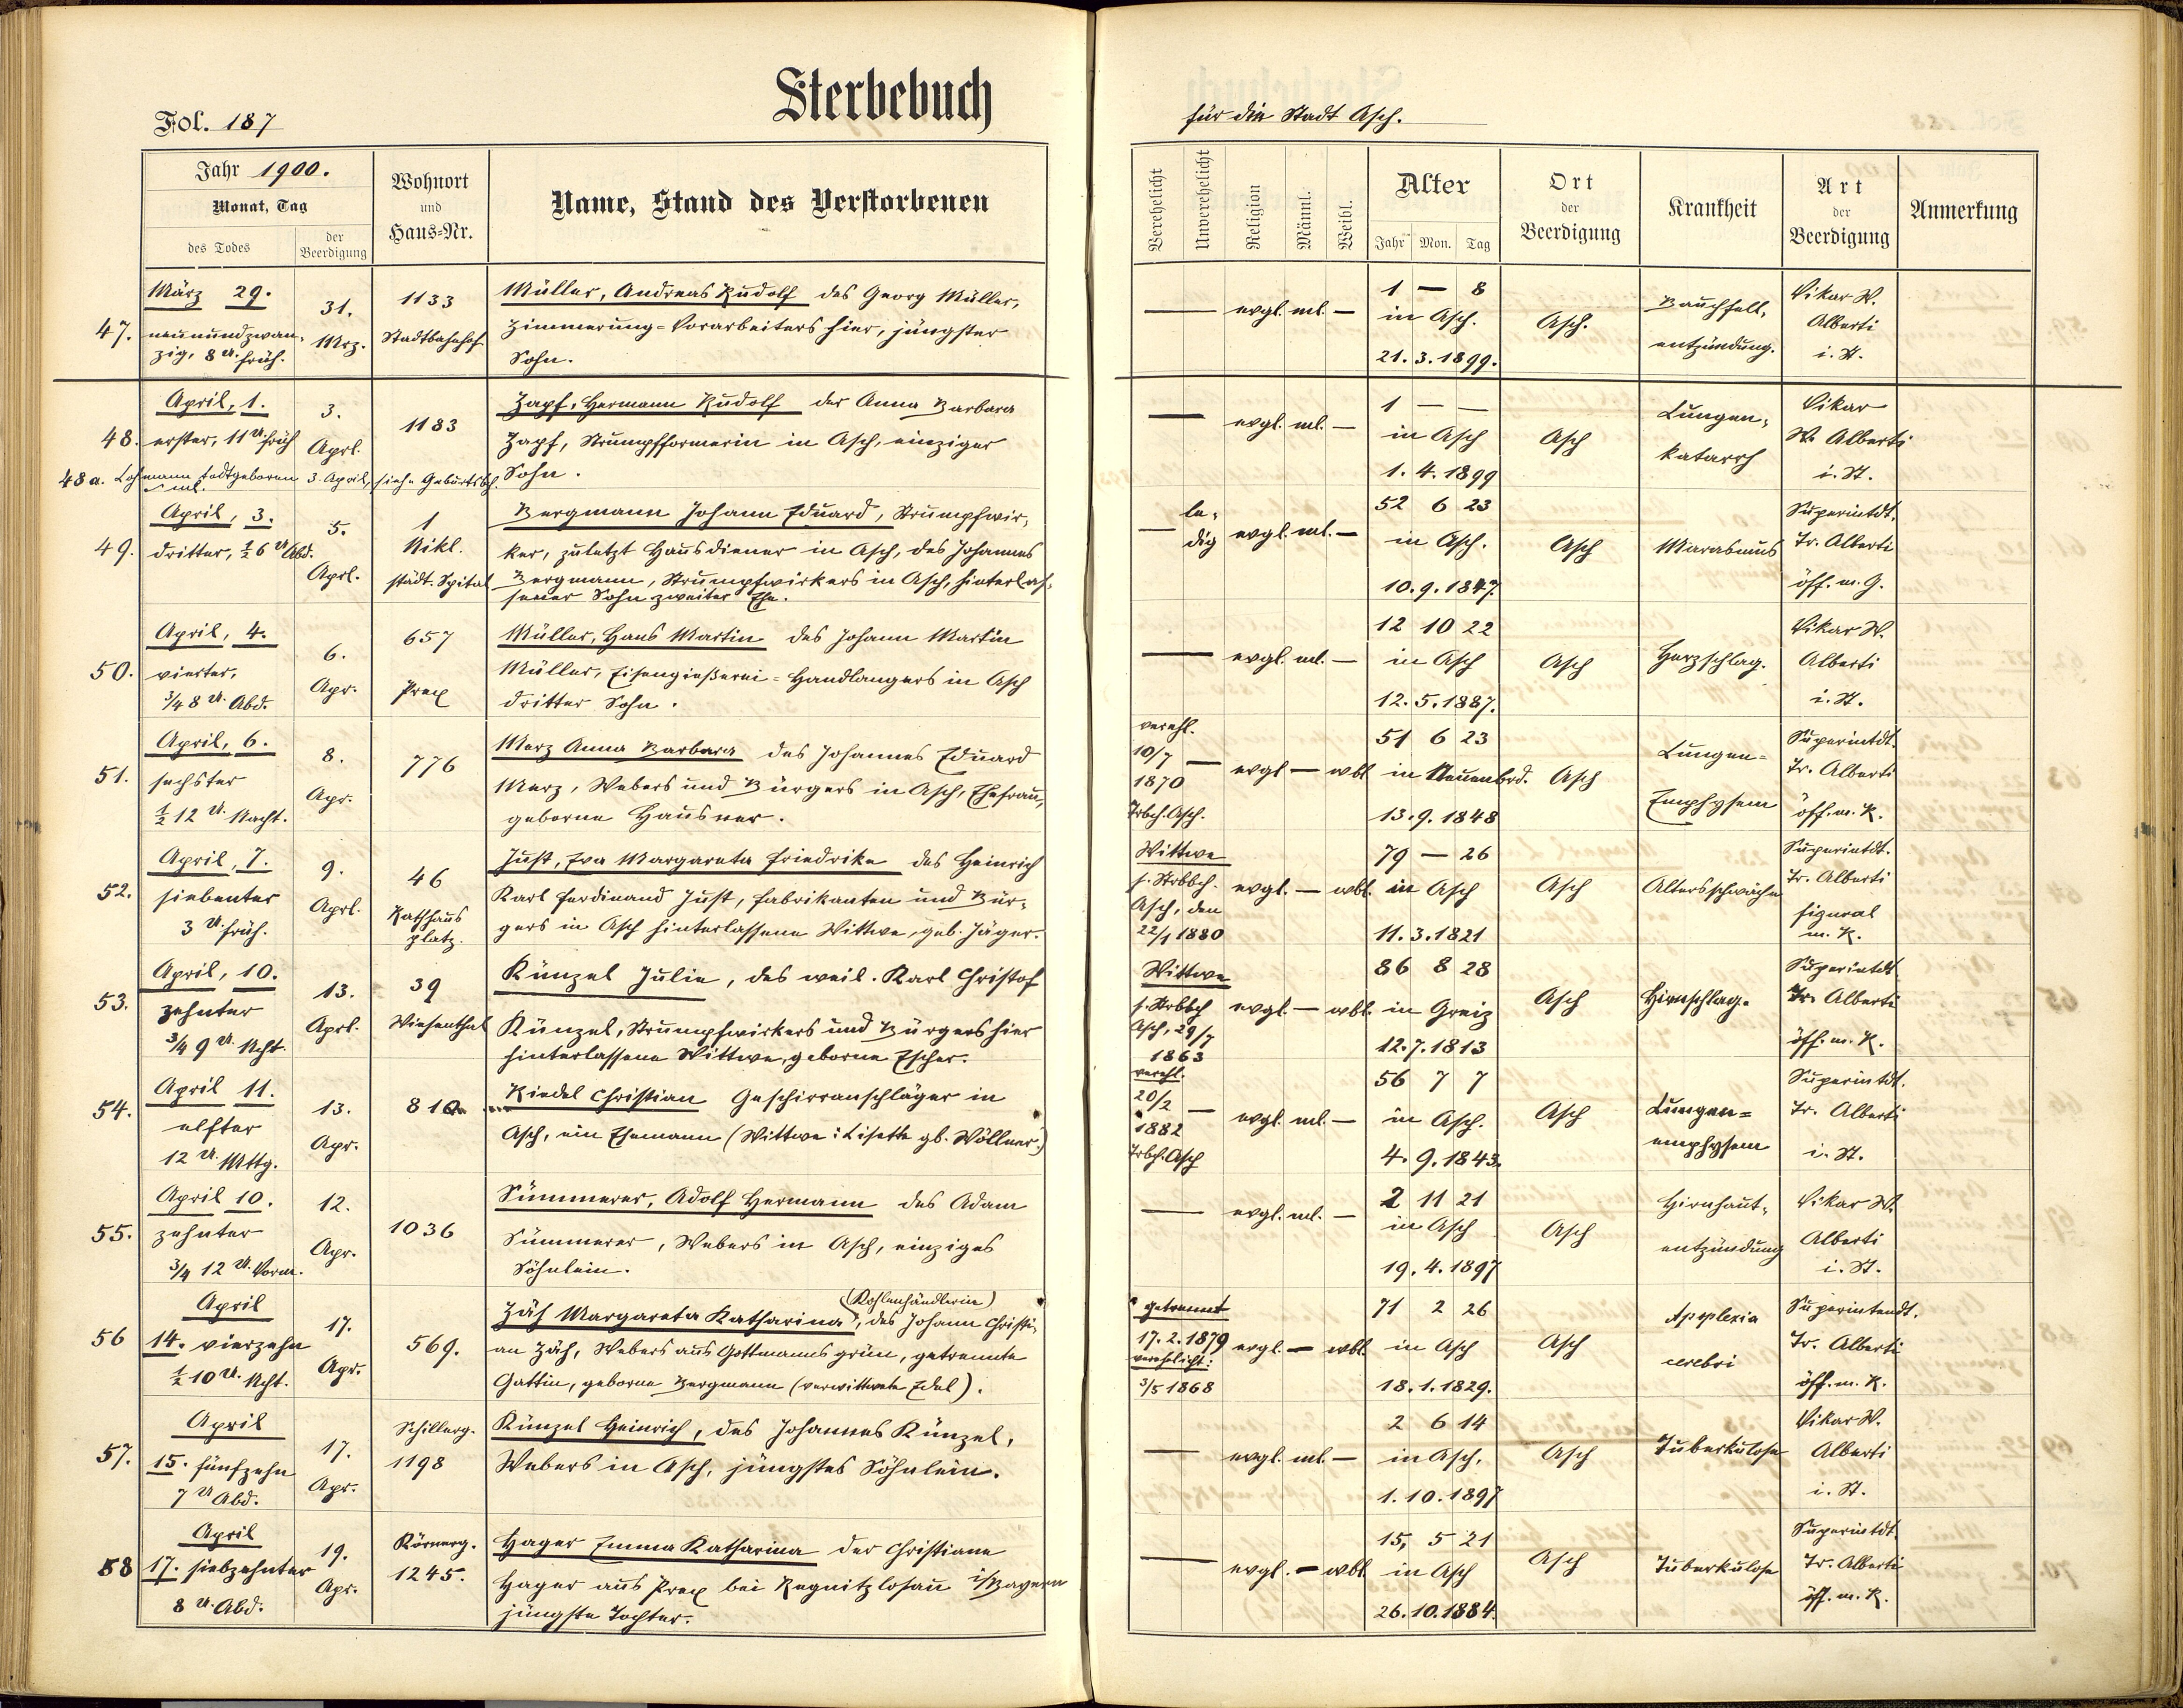 Sterbebuch
Fol. 187
für die Stadt Asch.
Jahr 1900.
Monat, Tag
des Todes
der Beerdigung
Wohnort
und
Haus-Nr.
Name, Stand des Verstorbenen
Verehelicht
Unverehelicht
Religion
Männl.
Weibl.
Alter
Jahr Mon. Tag
Ort
der
Beerdigung
Krankheit
Art
der
Beerdigung
Anmerkung
47.
März 29.
neunundzwan-
zig, 8 U. früh.
31.
Mrz.
1133
Stadtbahnhof
Müller, Andreas Rudolf des Georg Müller,
Zimmerung-Vorarbeiters hier, jüngster
Sohn.
— evgl. ml. —
1 — 8
in Asch.
21. 3. 1899.
Asch.
Bauchfell-
entzündung.
Vikar W.
Alberti
i. St.
48.
April, 1.
erster, 11 U. früh
3.
Aprl.
1183
Zapf, Hermann Rudolf der Anna Barbara
Zapf, Strumpfformerin in Asch, einziger
Sohn.
— evgl. ml. —
1 — —
in Asch
1. 4. 1899
Asch
Lungen-
katarrh
Vikar
W. Alberti
i. St.
48a. Lohmann todtgeboren 3. April, siehe Geburtsbch.
ml.
49.
April, 3.
dritter, ½6 U Abd.
5.
Aprl.
1
Nikl.
städt. Spital
Bergmann Johann Eduard, Strumpfwir-
ker, zuletzt Hausdiener in Asch, des Johannes
Bergmann, Strumpfwirkers in Asch, hinterlas-
sener Sohn zweiter Ehe.
— le-
dig
evgl. ml. —
52 6 23
in Asch.
10. 9. 1847.
Asch
Marasmus
Superintdt.
Dr. Alberti
öff. m. G.
50.
April, 4.
vierter,
¾8 U. Abd.
6.
Apr.
657
Prex
Müller, Hans Martin des Johann Martin
Müller, Eisengießerei-Handlangers in Asch
dritter Sohn.
— evgl. ml. —
12 10 22
in Asch
12. 5. 1887.
Asch
Herzschlag.
Vikar W.
Alberti
i. St.
51.
April, 6.
sechster
½12 U. Nacht.
8.
Apr.
776
Merz Anna Barbara des Johannes Eduard
Merz, Webers und Bürgers in Asch, Ehefrau,
geborne Hausner.
verehl.
10/7 —
1870
Trbch. Asch.
evgl — wbl
51 6 23
in Neuenbrd.
13. 9. 1848
Asch
Lungen-
Emphysem
Superintdt.
Dr. Alberti
öff. m. K.
52.
April, 7.
siebenter
3 U. früh.
9.
Aprl.
46
Rathhaus
platz.
Just, Eva Margareta Friedrike des Heinrich
Karl Ferdinand Just, Fabrikanten und Bür-
gers in Asch hinterlassene Wittwe, geb. Jäger.
Wittwe
s. Strbbch.
Asch, den
22/1 1880
evgl. — wbl.
79 — 26
in Asch
11. 3. 1821
Asch
Altersschwäche
Superintdt.
Dr. Alberti
figural
m. K.
53.
April, 10.
zehnter
¾9 U. Ncht.
13.
Aprl.
39
Wiesenthal
Künzel Julie, des weil. Karl Christof
Künzel, Strumpfwirkers und Bürgers hier
hinterlassene Wittwe, geborne Escher.
Wittwe
s. Strbbch
Asch, 29/7
1863
evgl. — wbl.
86 8 28
in Greiz
12. 7. 1813
Asch
Hirnschlag.
Superintdt
Dr. Alberti
öff. m. K.
54.
April 11.
elfter
12 U. Mttg.
13.
Apr.
810
Riedel Christian Geschirranschläger in
Asch, ein Ehemann (Wittwe: Lisette gb. Wöllner.)
verehl.
20/2 —
1882
Trbch. Asch
evgl. ml. —
56 7 7
in Asch.
4. 9. 1843.
Asch
Lungen-
emphysem
Superintdt.
Dr. Alberti
i. St.
55.
April 10.
zehnter
¾12 U. Vorm.
12.
Apr.
1036
Sümmerer, Adolf Hermann des Adam
Sümmerer, Webers in Asch, einziges
Söhnlein.
— evgl. ml. —
2 11 21
in Asch
19. 4. 1897
Asch
Hirnhaut-
entzündung
Vikar W.
Alberti
i. St.
56
April
14. vierzehn
½10 U. Ncht.
17.
Apr.
569.
(Kohlenhändlerin)
Zäh Margareta Katharina, des Johann Christi-
an Zäh, Webers aus Gottmannsgrün, getrennte
Gattin, geborne Bergmann (verwittwete Edel).
getrennt
17. 2. 1879
verehlicht:
3/5 1868
evgl. — wbl.
71 2 26
in Asch
18. 1. 1829.
Asch
Apoplexia
cerebri
Superintendt.
Dr. Alberti
öff. m. K.
57.
April
15. fünfzehn
7 U Abd.
17.
Apr.
Schillerg.
1198
Künzel Heinrich, des Johannes Künzel,
Webers in Asch, jüngstes Söhnlein.
— evgl. ml. —
2 6 14
in Asch.
1. 10. 1897
Asch
Tuberkulose
Vikar W.
Alberti
i. St.
58
April
17. siebzehnter
8 U. Abd.
19.
Apr.
Körnerg.
1245.
Hager Emma Katharina der Christiane
Hager aus Prex bei Regnitzlosau i/Bayern
jüngste Tochter.
— evgl. — wbl
15, 5 21
in Asch
26. 10. 1884.
Asch
Tuberkulose
Superintdt.
Dr. Alberti
öff. m. K.